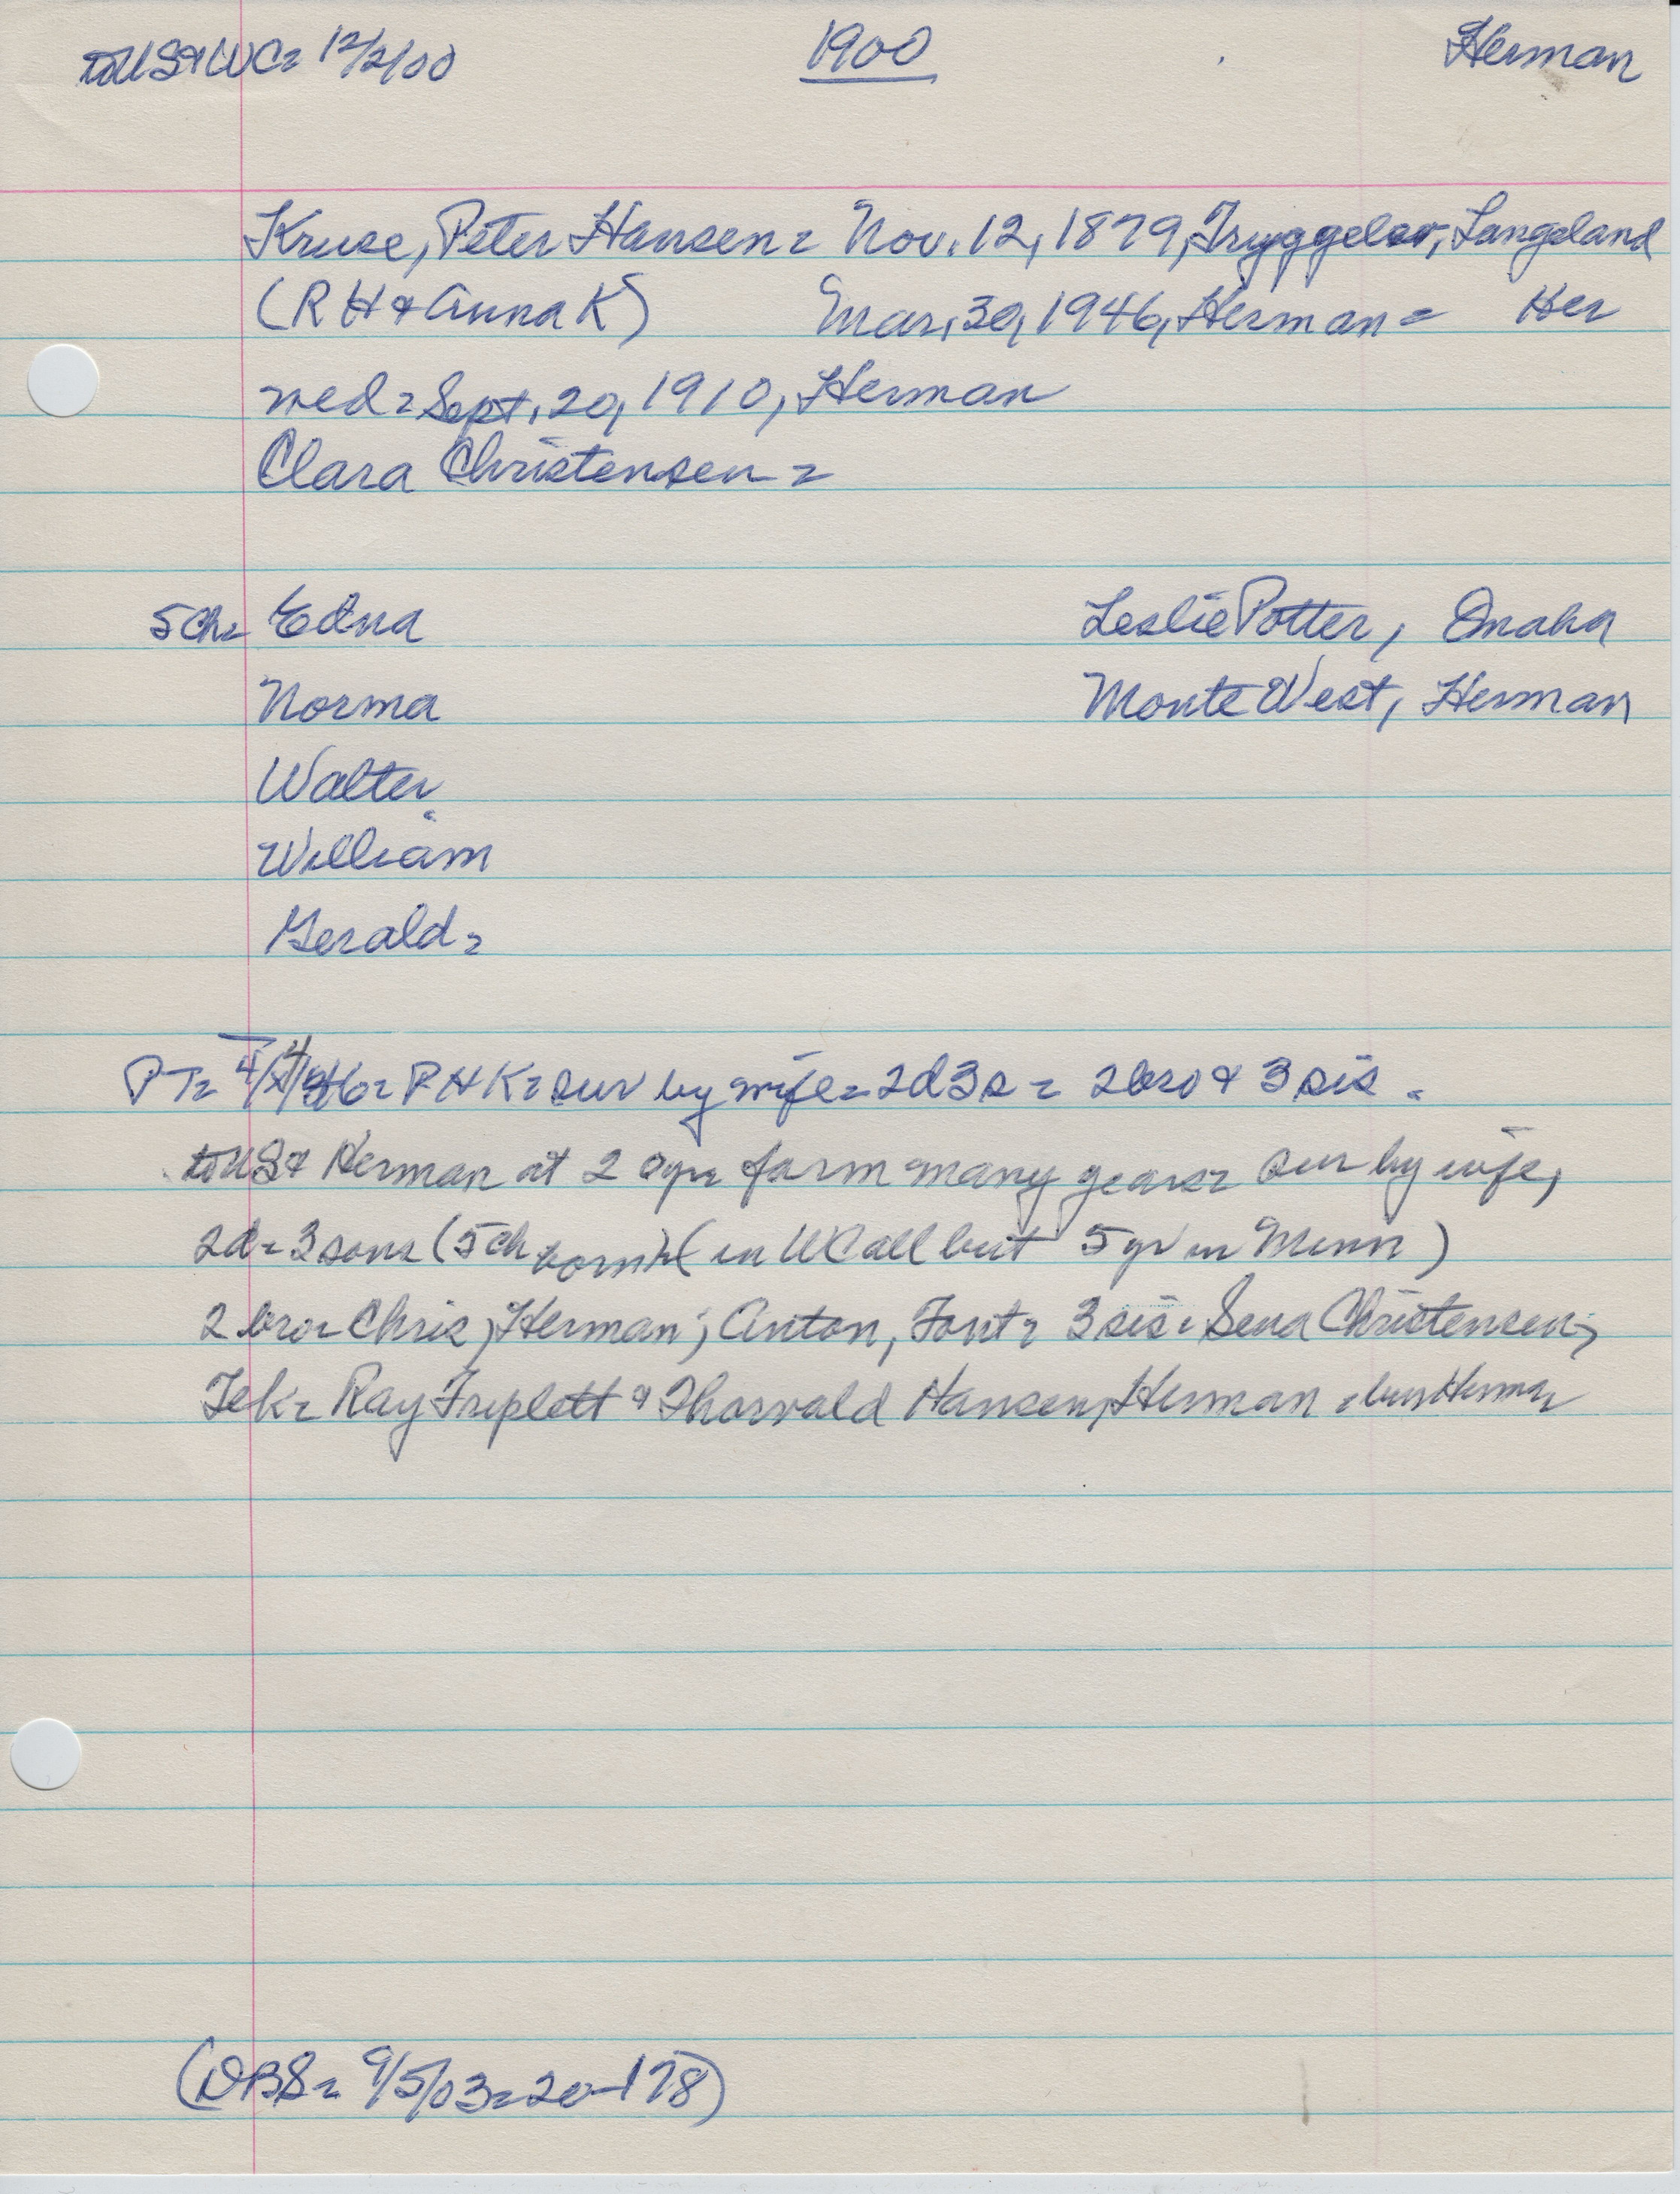 to US & WC= 12/2/00 1900 Herman
Kruse, Peter Hansen= Nov. 12, 1879, Tryggelev, Langeland
(R H & Anna K) Mar, 30, 1946, Herman= Her
wed= Sept. 20, 1910, Herman
Clara Christensen=
5 Ch= Edna Leslie Potter, Omaha
Norma Monte West, Herman
Walter
William
Gerald=
PT= 4/4/46= P H K= sur by wife= 2d 3s= 2 bro & 3 sis.
to US & Herman at 20 yr= farm many years= sur by wife,
2d= 3 sons (5 ch born) ( in WC all but 5 yr in Minn)
2 bro= Chris, Herman; Anton, Font= 3 sis= Sena Christensen,
Tek= Ray Triplett & Thorvald Hansen, Herman= bur Herman
(DBS= 9/5/03= 20-178)